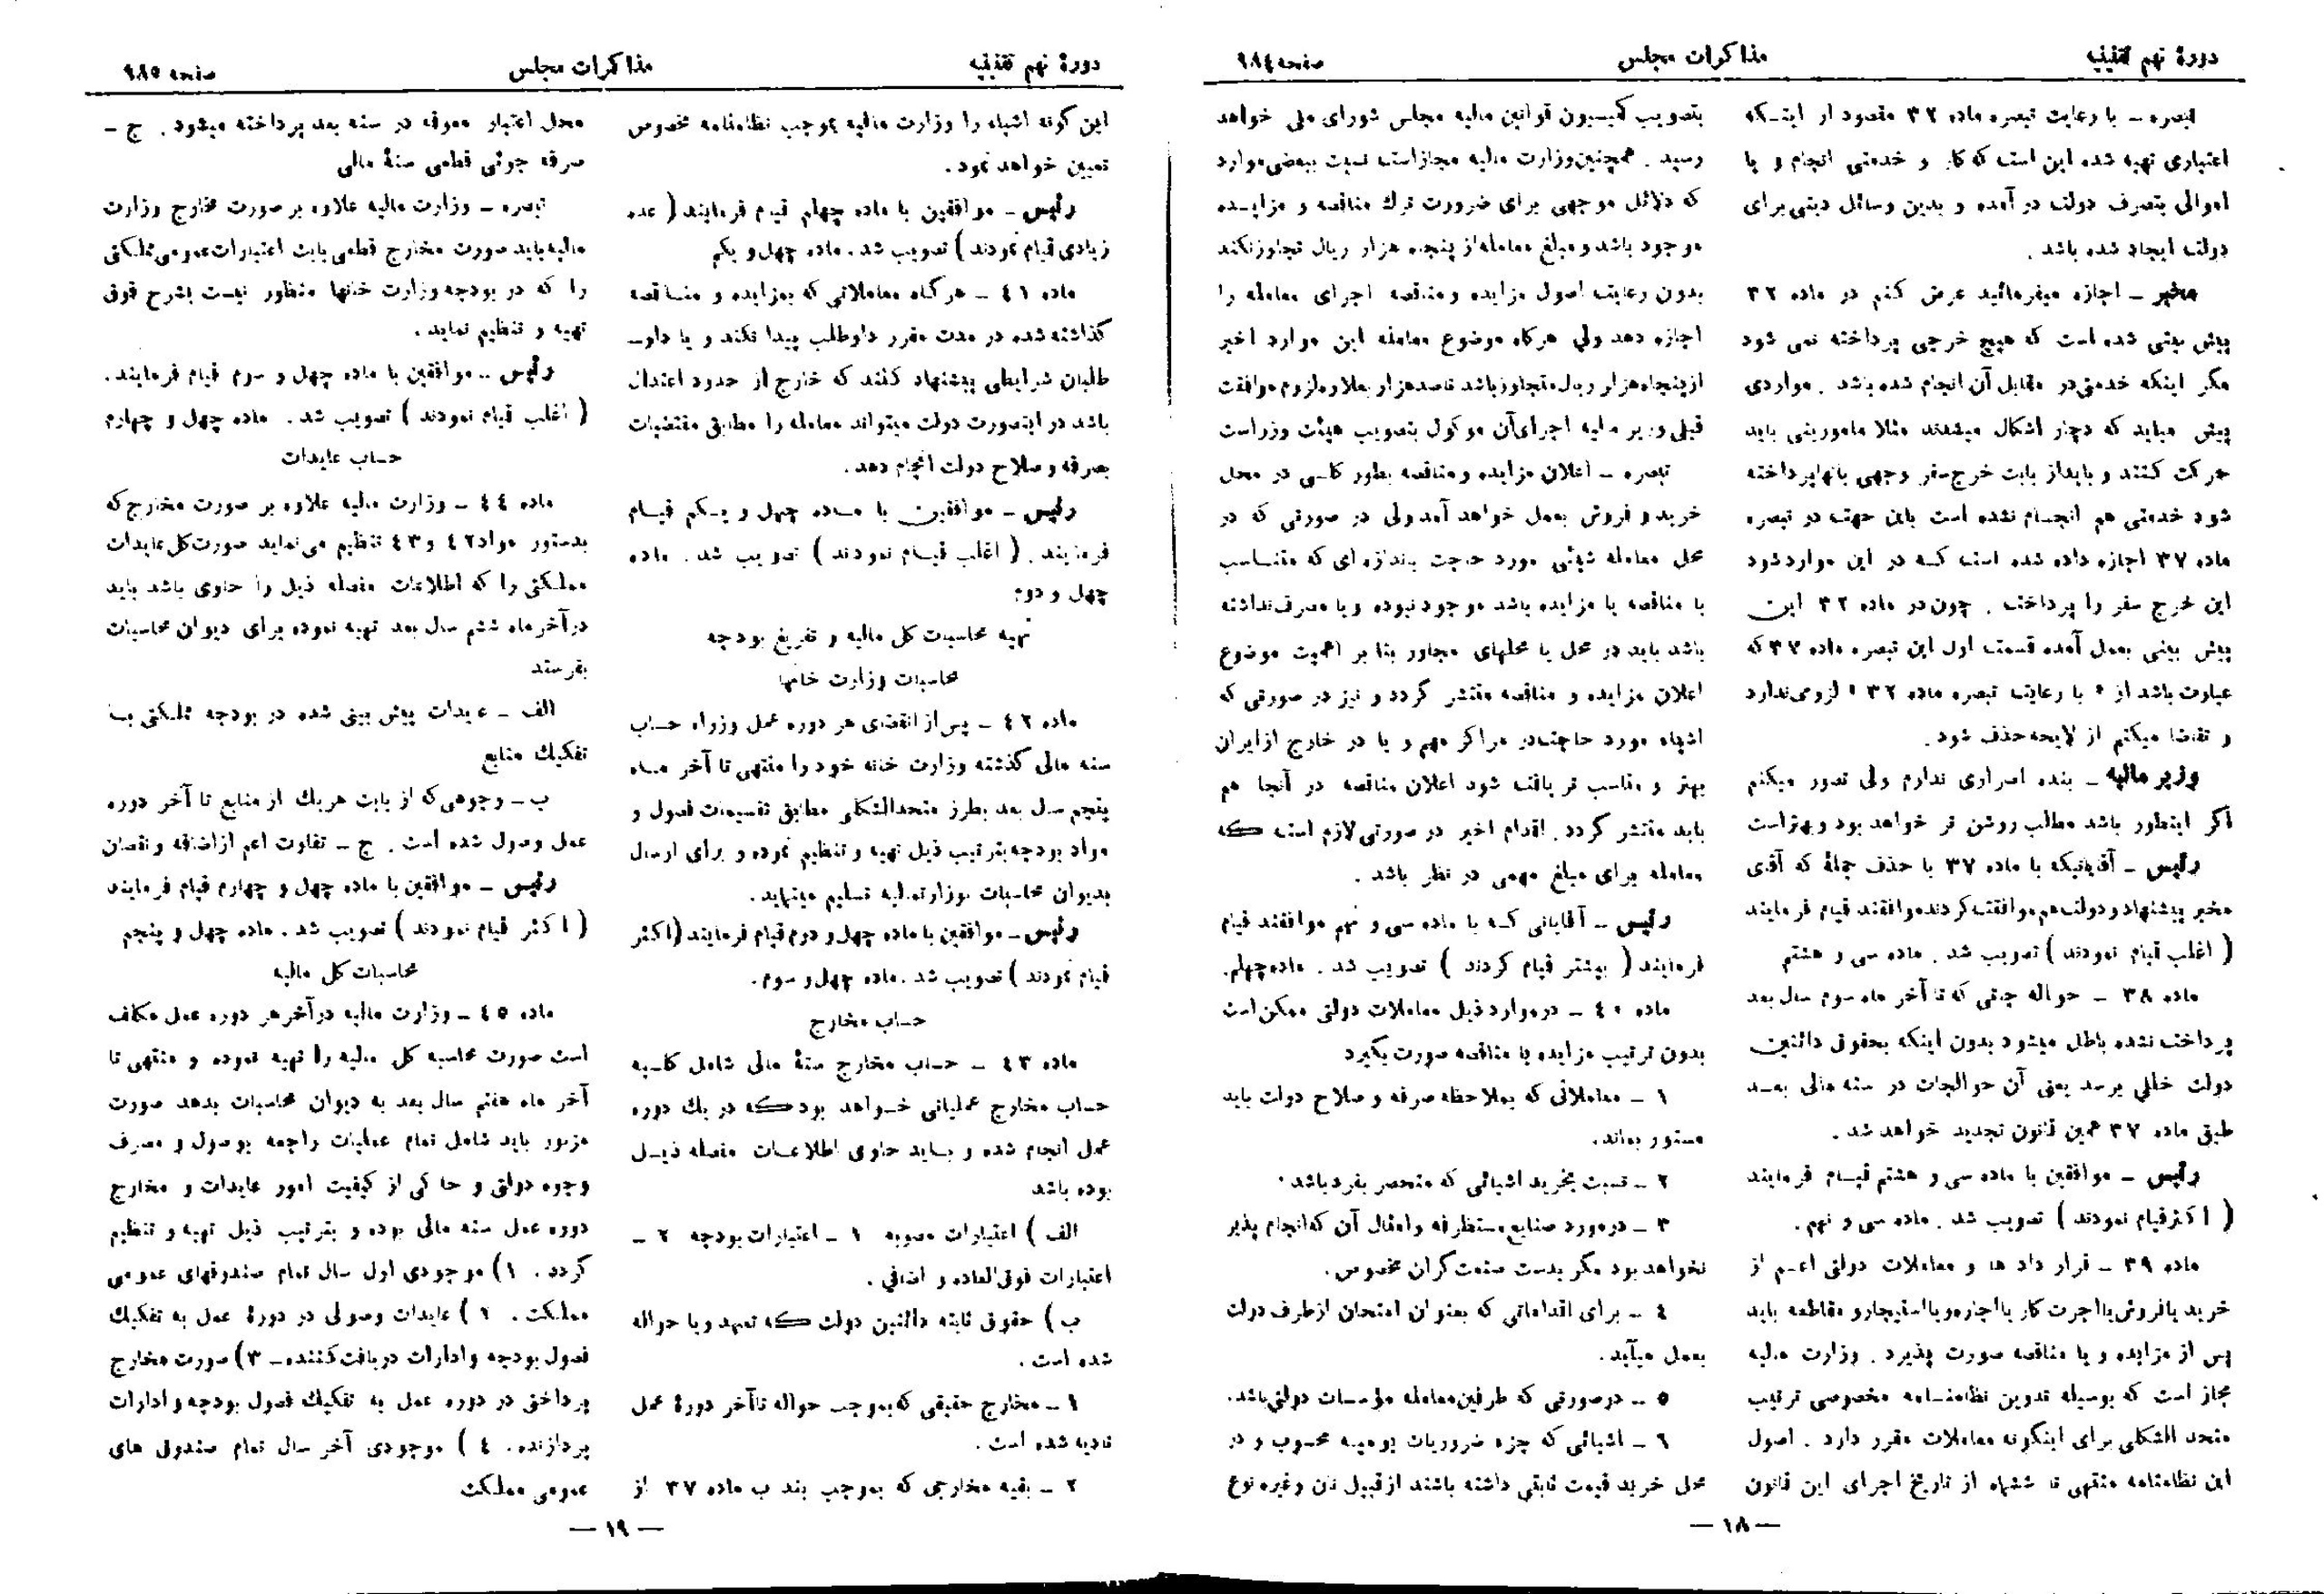 دورهٔ نهم تقنینیه مذاکرات مجلس صفحه ۹۸۴
تبصره – با رعایت تبصره ماده ۳۲ مقصود از اینکه
اعتباری تهیه شده این است که کار و خدمتی انجام و یا
اموالی بتصرف دولت درآمده و بدین وسائل دینی برای
دولت ایجاد شده باشد .
مخبر – اجازه میفرمائید عرض کنم در ماده ۳۲
پیش بینی شده است که هیچ خرجی پرداخته نمی شود
مگر اینکه خدمتی در مقابل آن انجام شده باشد . مواردی
پیش میاید که دچار اشکال میشدند مثلا مامورینی باید
حرکت کنند و باید از بابت خرج سفر وجهی بانها پرداخته
شود خدمتی هم انجام نشده است باین جهت در تبصره
ماده ۳۷ اجازه داده شده است که در این موارد شود
این خرج سفر را پرداخت . چون در ماده ۳۲ این
پیش بینی بعمل آمده قسمت اول این تبصره ماده ۳۷ که
عبارت باشد از « با رعایت تبصره ماده ۳۲ » لزومی ندارد
و تقاضا میکنم از لایحه حذف شود .
وزیر مالیه – بنده اصراری ندارم ولی تصور میکنم
اگر اینطور باشد مطالب روشن تر خواهد بود و بهتر است
رئیس – آقایانیکه با ماده ۳۷ با حذف جملهٔ که آقای
مخبر پیشنهاد و دولت هم موافقت کردند موافقند قیام فرمایند
( اغلب قیام نمودند ) تصویب شد . ماده سی و هشتم
ماده ۳۸ – حواله جاتی که تا آخر ماه سوم سال بعد
پرداخت نشده باطل میشود بدون اینکه بحقوق دائنین
دولت خللی برسد یعنی آن حوالجات در سنه مالی بعد
طبق ماده ۳۷ همین قانون تجدید خواهد شد .
رئیس – موافقین با ماده سی و هشتم قیام فرمایند
( اکثر قیام نمودند ) تصویب شد . ماده سی و نهم .
ماده ۳۹ – قرار داد ها و معاملات دولتی اعم از
خرید یا فروش یا اجرت کار یا اجاره و یا استیجار و مقاطعه باید
پس از مزایده و یا مناقصه صورت پذیرد . وزارت مالیه
مجاز است که بوسیله تدوین نظامنامه مخصوصی ترتیب
متحد الشکلی برای اینگونه معاملات مقرر دارد . اصول
این نظامنامه منتهی تا ششماه از تاریخ اجرای این قانون
بتصویب کمیسیون قوانین مالیه مجلس شورای ملی خواهد
رسید . همچنین وزارت مالیه مجاز است نسبت ببعضی موارد
که دلائل موجهی برای ضرورت ترك مناقصه و مزایده
موجود باشد و مبلغ معامله از پنجاه هزار ریال تجاوز نکند
بدون رعایت اصول مزایده و مناقصه اجرای معامله را
اجازه دهد ولی هرگاه موضوع معامله این موارد اخیر
از پنجاه هزار ریال متجاوز باشد تا صد هزار بعلاوه لزوم موافقت
قبلی وزیر مالیه اجرای آن موکول بتصویب هیئت وزراست
تبصره – اعلان مزایده و مناقصه بطور کلی در محل
خرید و فروش بعمل خواهد آمد ولی در صورتی که در
محل معامله شیئی مورد حاجت باندازه ای که متناسب
با مناقصه یا مزایده باشد موجود نبوده و یا مصرف نداشته
باشد باید در محل یا محلهای مجاور بنا بر اهمیت موضوع
اعلان مزایده و مناقصه منتشر گردد و نیز در صورتی که
اشیاء مورد حاجت در مراکز مهم و یا در خارج از ایران
بهتر و مناسب تر یافت شود اعلان مناقصه در آنجا هم
باید منتشر گردد . اقدام اخیر در صورتی لازم است که
معامله برای مبلغ مهمی در نظر باشد .
رئیس – آقایانی که با ماده سی و نهم موافقند قیام
فرمایند ( بیشتر قیام کردند ) تصویب شد . ماده چهلم .
ماده ۴۰ – در موارد ذیل معاملات دولتی ممکن است
بدون ترتیب مزایده یا مناقصه صورت بگیرد
۱ – معاملاتی که بملاحظه صرفه و صلاح دولت باید
مستور بماند .
۲ – نسبت بخرید اشیائی که منحصر بفرد باشد .
۳ – در مورد صنایع مستظرفه و امثال آن که انجام پذیر
نخواهد بود مگر بدست صنعت گران مخصوص .
۴ – برای اقداماتی که بعنوان امتحان از طرف دولت
بعمل میآید .
۵ – در صورتی که طرفین معامله مؤسسات دولتی باشد .
۶ – اشیائی که جزء ضروریات یومیه محسوب و در
محل خرید قیمت ثابتی داشته باشند از قبیل نان و غیره نوع
— ۱۸ —
دورهٔ نهم تقنینیه مذاکرات مجلس صفحه ۹۸۵
این گونه اشیاء را وزارت مالیه بموجب نظامنامه مخصوص
تعیین خواهد نمود .
رئیس – موافقین با ماده چهلم قیام فرمایند ( عده
زیادی قیام نمودند ) تصویب شد . ماده چهل و یکم
ماده ۴۱ – هر گاه معاملاتی که بمزایده و مناقصه
گذاشته شده در مدت مقرر داوطلب پیدا نکند و یا داو–
طلبان شرایطی پیشنهاد کنند که خارج از حدود اعتدال
باشد در اینصورت دولت میتواند معامله را مطابق مقتضیات
بصرفه و صلاح دولت انجام دهد .
رئیس – موافقین با ماده چهل و یکم قیام
فرمایند . ( اغلب قیام نمودند ) تصویب شد . ماده
چهل و دوم
تهیه محاسبات کل مالیه و تفریغ بودجه
محاسبات وزارت خانها
ماده ۴۲ – پس از انقضای هر دوره عمل وزراء حساب
سنه مالی گذشته وزارت خانه خود را منتهی تا آخر ماه
پنجم سال بعد بطرز متحدالشکلی مطابق تقسیمات فصول و
مواد بودجه بترتیب ذیل تهیه و تنظیم نموده و برای ارسال
بدیوان محاسبات بوزارت مالیه تسلیم مینماید .
رئیس – موافقین با ماده چهل و دوم قیام فرمایند (اکثر
قیام نمودند ) تصویب شد . ماده چهل و سوم .
حساب مخارج
ماده ۴۳ – حساب مخارج سنهٔ مالی شامل کلیه
حساب مخارج عملیاتی خواهد بود که در یك دوره
عمل انجام شده و باید حاوی اطلاعات مفصله ذیل
بوده باشد
الف ) اعتبارات مصوبه ۱ – اعتبارات بودجه ۲ –
اعتبارات فوق العاده و اضافی .
ب ) حقوق ثابته دائنین دولت که تعهد و یا حواله
شده است .
۱ – مخارج حقیقی که بموجب حواله تا آخر دورهٔ عمل
تادیه شده است .
۲ – بقیه مخارجی که بموجب بند ب ماده ۳۷ از
محل اعتبار معوقه در سنه بعد پرداخته میشود . ج –
صرفه جوئی قطعی سنهٔ مالی
تبصره – وزارت مالیه علاوه بر صورت مخارج وزارت
مالیه باید صورت مخارج قطعی بابت اعتبارات عمومی مملکتی
را که در بودجه وزارت خانها منظور نیست بشرح فوق
تهیه و تنظیم نماید .
رئیس – موافقین با ماده چهل و سوم قیام فرمایند .
( اغلب قیام نمودند ) تصویب شد . ماده چهل و چهارم
حساب عایدات
ماده ۴۴ – وزارت مالیه علاوه بر صورت مخارج که
بدستور مواد ۴۲ و ۴۳ تنظیم می نماید صورت کل عایدات
مملکتی را که اطلاعات مفصله ذیل را حاوی باشد باید
در آخر ماه ششم سال بعد تهیه نموده برای دیوان محاسبات
بفرستد
الف – عایدات پیش بینی شده در بودجه مملکتی با
تفکیك منابع
ب – وجوهی که از بابت هر یك از منابع تا آخر دوره
عمل وصول شده است . ج – تفاوت اعم از اضافه و نقصان
رئیس – موافقین با ماده چهل و چهارم قیام فرمایند
( اکثر قیام نمودند ) تصویب شد . ماده چهل و پنجم
محاسبات کل مالیه
ماده ۴۵ – وزارت مالیه در آخر هر دوره عمل مکلف
است صورت محاسبه کل مالیه را تهیه نموده و منتهی تا
آخر ماه هفتم سال بعد به دیوان محاسبات بدهد صورت
مزبور باید شامل تمام عملیات راجعه بوصول و مصرف
وجوه دولتی و حاکی از کیفیت امور عایدات و مخارج
دوره عمل سنه مالی بوده و بترتیب ذیل تهیه و تنظیم
گردد . ۱) موجودی اول سال تمام صندوقهای عمومی
مملکت . ۲ ) عایدات وصولی در دورهٔ عمل به تفکیك
فصول بودجه و ادارات دریافت کننده – ۳) صورت مخارج
پرداختی در دوره عمل به تفکیك فصول بودجه و ادارات
پردازنده . ۴ ) موجودی آخر سال تمام صندوق های
عمومی مملکت
— ۱۹ —